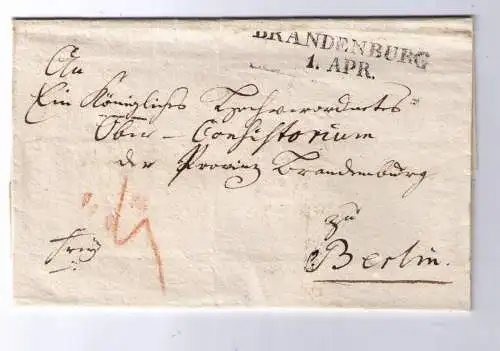 BRANDENBURG
1. APR.
An
Ein Königliches Hochverordnetes
Ober-Consistorium
der Provinz Brandenburg
zu
Berlin.